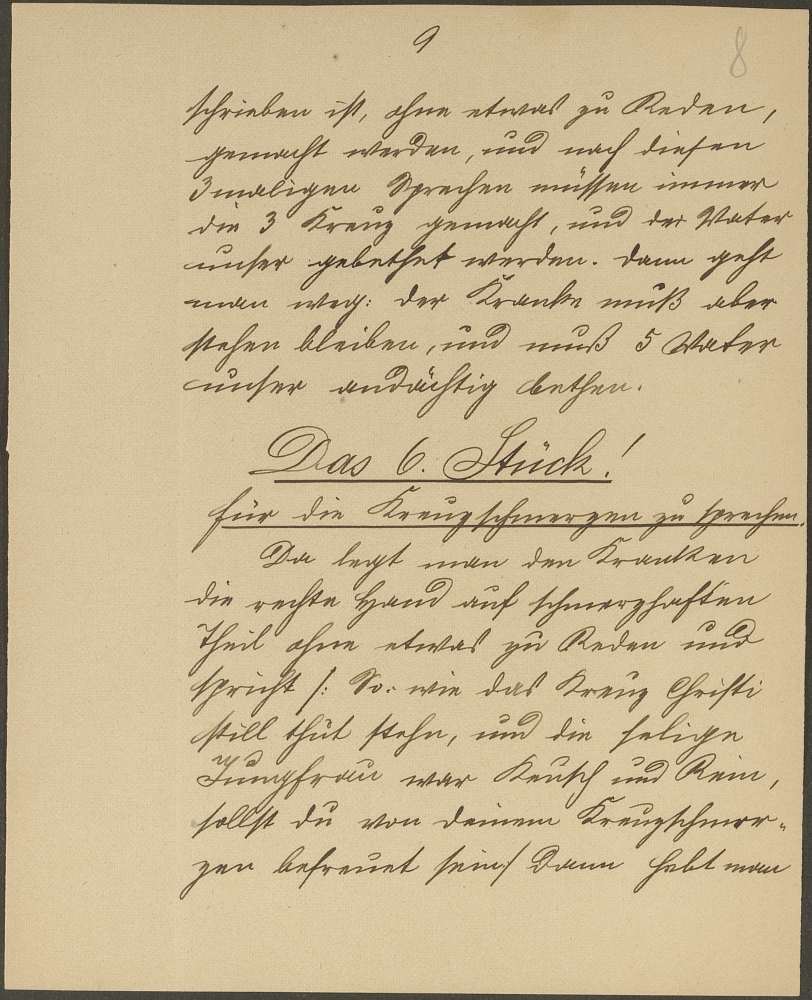 9
8
schrieben ist, ohne etwas zu Reden,
gemacht werden, und nach diesen
3maligen Sprechen müssen immer
die 3 Kreuz gemacht, und der Vater
unser gebethet werden. Dann geht
man weg: der Kranke muß aber
stehen bleiben, und muß 5 Vater
unser andächtig bethen.
Das 6. Stück!
für die Kreuzschmerzen zu sprechen.
Da legt man den Kranken
die rechte Hand auf schmerzhaften
Theil ohne etwas zu Reden und
spricht /: So: wie das Kreuz Christi
still thüt stehn, und die selige
Jungfrau war Keusch und Rein,
sollst du von deinem Kreuzschmer-
zen befreuet sein/ Dann hebt man